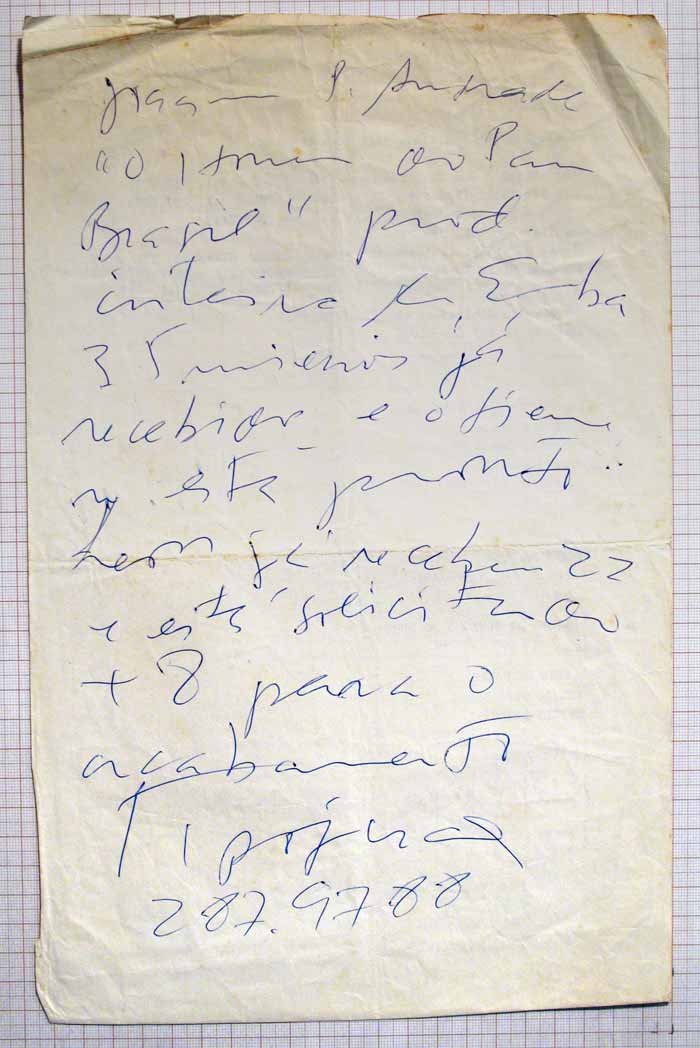 Joaquim P. Andrade
"O Homem do Pau
Brasil" prod.
inteira da Emba
35 milhões já
recebidos e o filme
ñ está pronto
Leon já recebeu 22
e está solicitando
+ 8 para o
acabamento
Ipojuca
287.9788